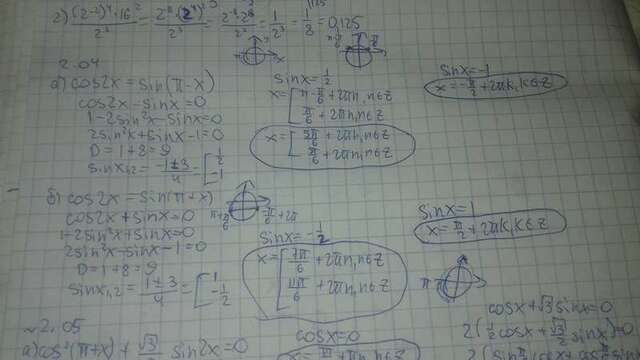 г) (2⁻²)⁴·16² / 2³ = 2⁻⁸·(2⁴)² / 2³ = 2⁻⁸·2⁸ / 2³ = 1/2³ = 1/8 = 0,125
2.04
а) cos2x = sin(π-x)
cos2x - sinx = 0
1-2sin²x - sinx = 0
2sin²x + sinx - 1 = 0
D = 1+8 = 9
sinx₁,₂ = (-1±3)/4 = [ 1/2
-1
sinx = 1/2
x = [ π - π/6 + 2πn, n∈Z
π/6 + 2πn, n∈Z
x = [ 5π/6 + 2πn, n∈Z
π/6 + 2πn, n∈Z
sinx = -1
x = -π/2 + 2πk, k∈Z
б) cos2x = sin(π+x)
cos2x + sinx = 0
1-2sin²x + sinx = 0
2sin²x - sinx - 1 = 0
D = 1+8 = 9
sinx₁,₂ = (1±3)/4 = [ 1
-1/2
π+π/6
-π/6+2π
sinx = -1/2
x = [ 7π/6 + 2πn, n∈Z
11π/6 + 2πn, n∈Z
sinx = 1
x = π/2 + 2πk, k∈Z
~2.05
а) cos²(π+x) + √3/2 sin2x = 0
cosx = 0
cosx + √3 sinx = 0
2(1/2 cosx + √3/2 sinx) = 0